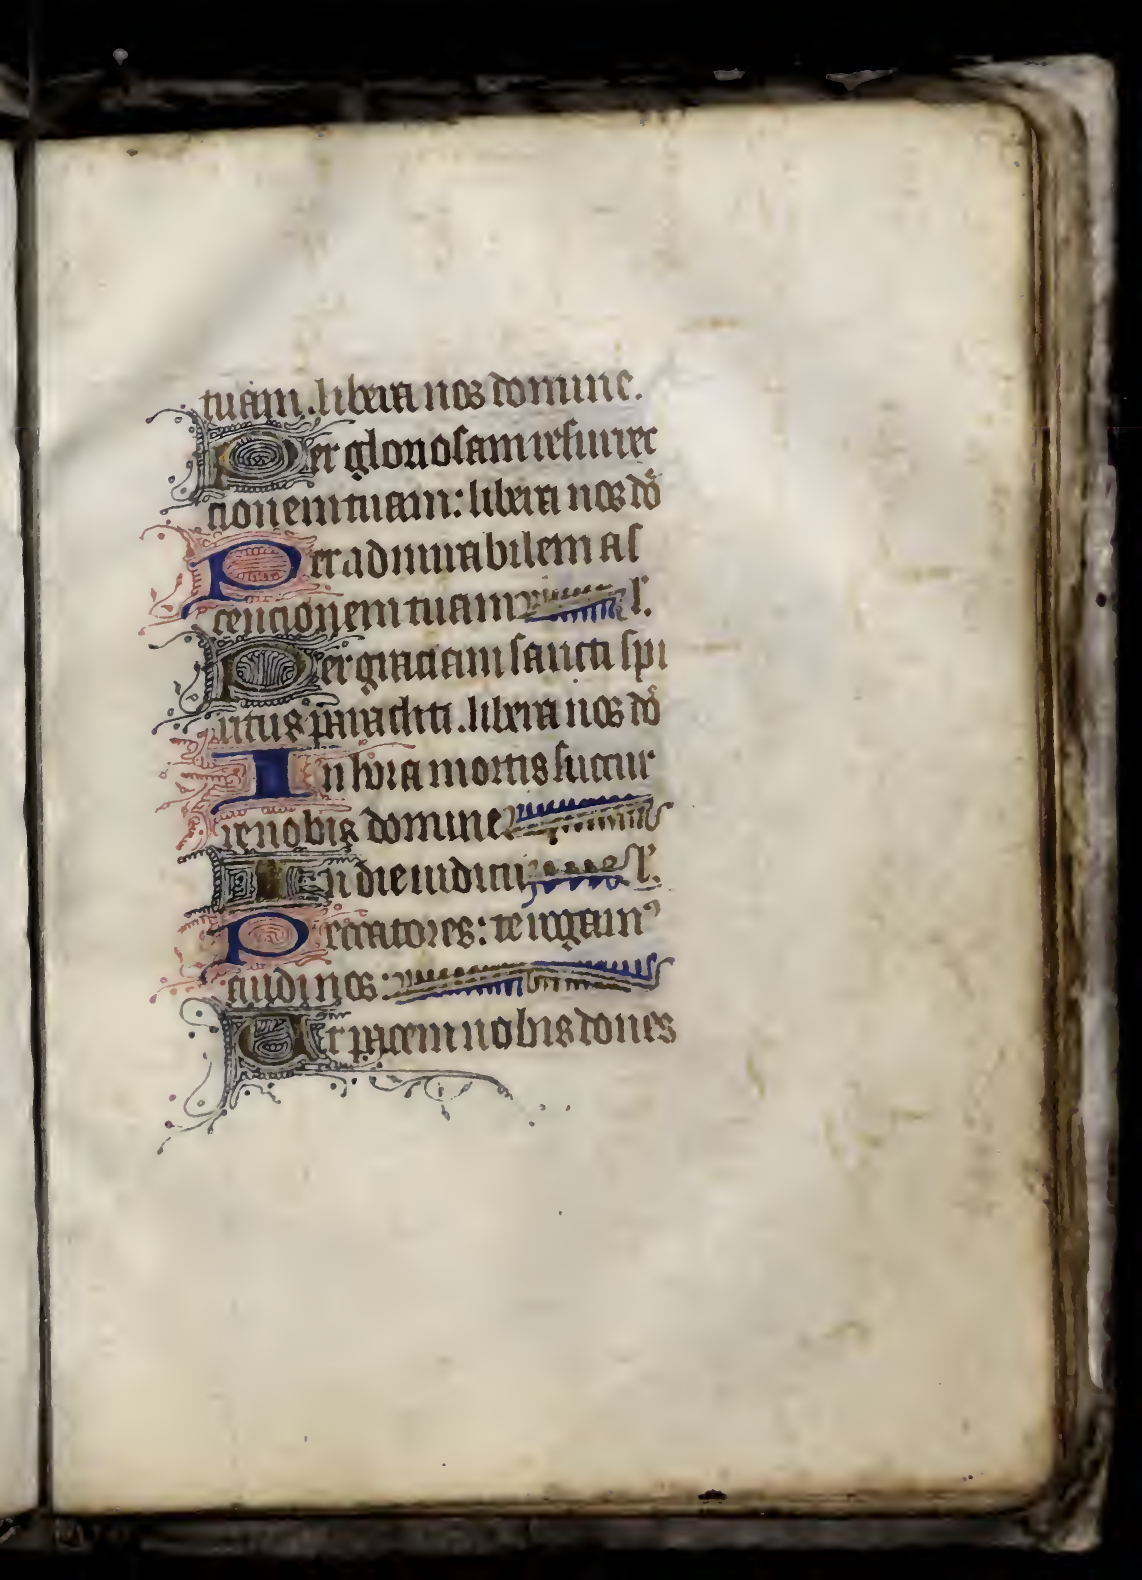 tuam. libera nos domine.
Per gloriosam resurrec
cionem tuam: libera nos dō
Per admirabilem as
cencionem tuam l'.
Per graciam sancti spi
ritus paracliti. libera nos dō
In hora mortis succur
re nobis domine
In die iudicii l'.
Peccatores: te rogamꝰ
audi nos:
Ut pacem nobis dones